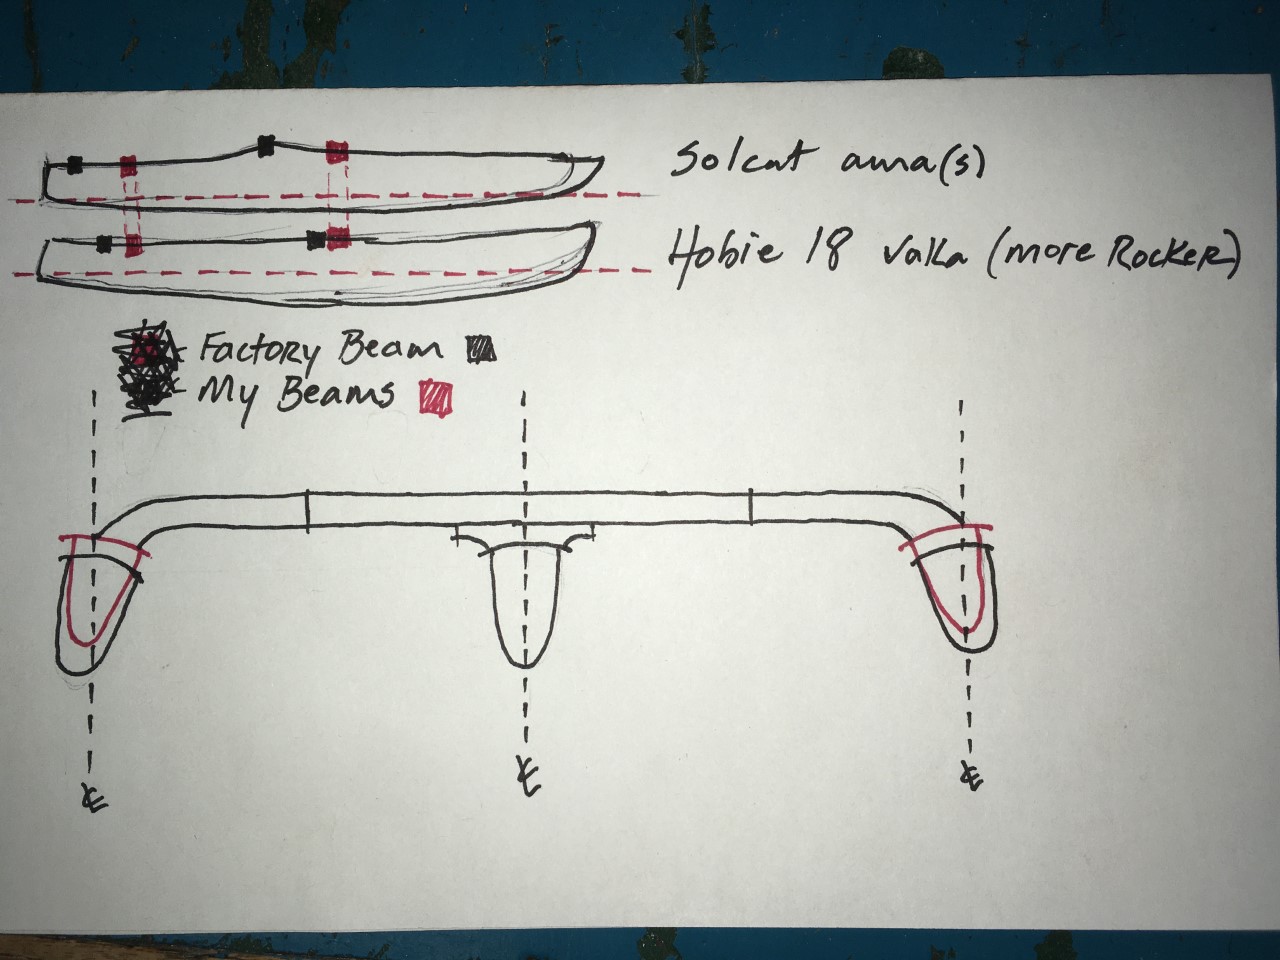 Solcat ama(s)
Hobie 18 Vaka (more Rocker)
Factory Beam
My Beams
℄
℄
℄